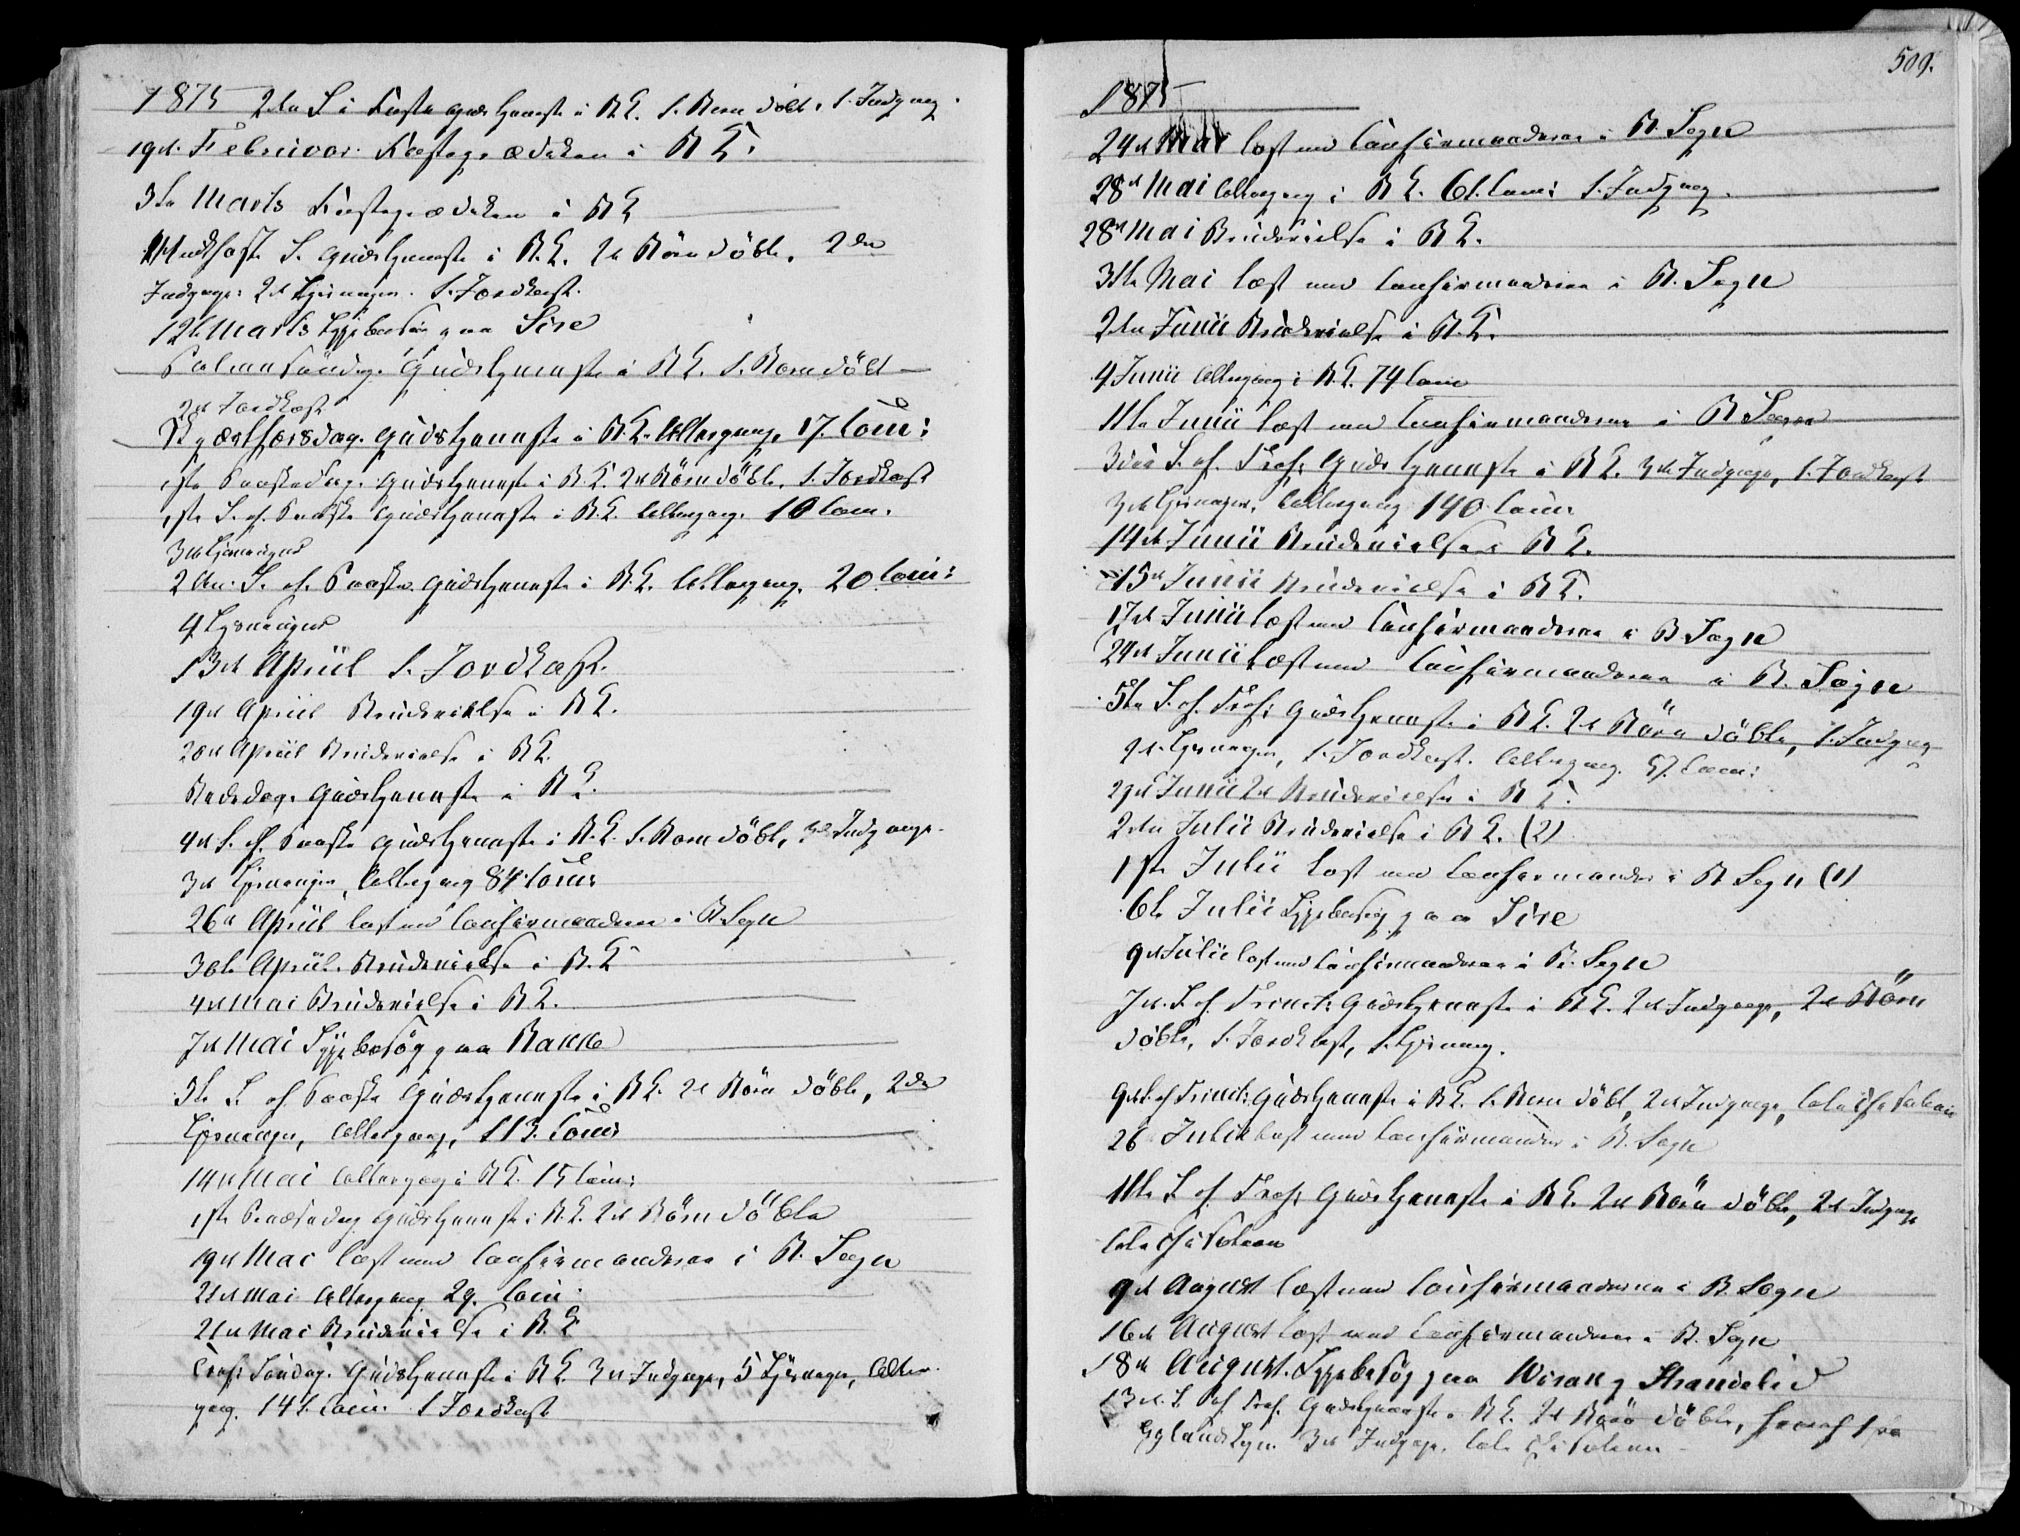 1875 2den S. i Faste Gudstjeneste i B K. 1. Barn döbt. 1. Indgang.
19de Februar. Fasteprædiken i B K.
3die Marts Fasteprædiken i B K
Midfaste S. Gudstjeneste i B. K. 2de Börn döbte. 2den
Indgange. 2de Lysninger. 1. Jordkast.
12te Marts Sygebesøg paa Sire
Palmesöndag. Gudstjeneste i B K. 1. Barn döbt
2de Jordkast
Skjærthorsdag. Gudstjeneste i B. K. Altergang. 17. Com:
1ste Paaskedag. Gudstjeneste i B. K. 2de Börn döbte. 1. Jordkast
1ste S. ef. Paaske Gudstjeneste i B. K. Altergang. 10 Com.
3de Lysninger
2den S. ef. Paaske Gudstjeneste i B. K. Altergang. 20. Com:
4 Lysninger
13de Apriil 1. Jordkast.
19de Apriil Brudevielse i B K.
20de Apriil Brudevielse i B K.
Bededag. Gudstjeneste i B K.
4de S. ef. Paaske Gudstjeneste i B. K. 1. Barn döbt, Indgange.
3de Lysninger, Altergang 84 Com:
26de Apriil læst med Confirmanderne i B. Sogn
30te Apriil. Brudevielse i B. K
4de Mai Brudevielse i B K.
7de Mai Sygebesög paa Bakke
5te S. ef. Paaske Gudstjeneste i B K. 2de Börn döbte, 2de
Lysninger, Altergang, 113. Com:
14de Mai Altergang i B K. 15 Com:
1ste Pindsedag Gudstjeneste i B. K. 2de Börn döbte
19de Mai læst med Confirmanderne i B. Sogn
21de Mai Altergang 29. Com:
21de Mai Brudevielse i B. K
Tref: Söndag. Gudstjeneste i B K. 3de Indgange, 5 Lysninger, Alter-
gang. 141. Com: 1 Jordkast
509.
1875
24de Mai læst med Confirmanderne i B. Sogn
28de Mai Altergang i B K. 61. Com: 1. Indgang.
28de Mai Brudevielse i B K.
31te Mai læst med Confirmanderne i B. Sogn
2den Junii Brudevielse i B. K.
4 Junii Altergang i B K. 74 Com
11te Junii læst med Confirmanderne i B Sogn
3die S. ef. Tref: Gudstjeneste i B K. 3de Indgange, 1. Jordkast
3de Lysninger, Altergang 140 Com:
14de Junii Brudevielse i B K.
15de Junii Brudevielse i B K.
17de Junii læst med Confirmanderne i B Sogn
24de Junii læst med Confirmanderne i B. Sogn
5te S. ef. Tref: Gudstjeneste i B K. 2de Börn döbte, 1. Indgang
2de Lysninger, 1. Jordkast. Altergang. 57. Com:
29de Junii 2de Brudevielser i B K.
2den Julii Brudevielse i B K. (2)
1ste Julii læst med Confirmander i B Sogn (1)
6te Julii Sygebesög paa Sire
9de Julii læst med Confirmanderne i B. Sogn
7de S. ef. Trinit: Gudstjeneste i B K. 2de Indgange, 2de Börn
döbte, 1. Jordkast, 1. Lysning.
9de S. ef Trinit: Gudstjeneste i B K. 1. Barn döbt, 2de Indgange,
26 Julii læst med Confirmander i B. Sogn
11te S. ef. Tref: Gudstjeneste i B K. 2de Börn döbte, 2de Indgange
9de August læst med Confirmanderne i B. Sogn
16de August læst med Confirmanderne i B. Sogn
18de August. Sygebesög paa Wirak og Strandelid
13de S. ef Tref. Gudstjeneste i B K. 2de Börn döbte,
3de Indgange.